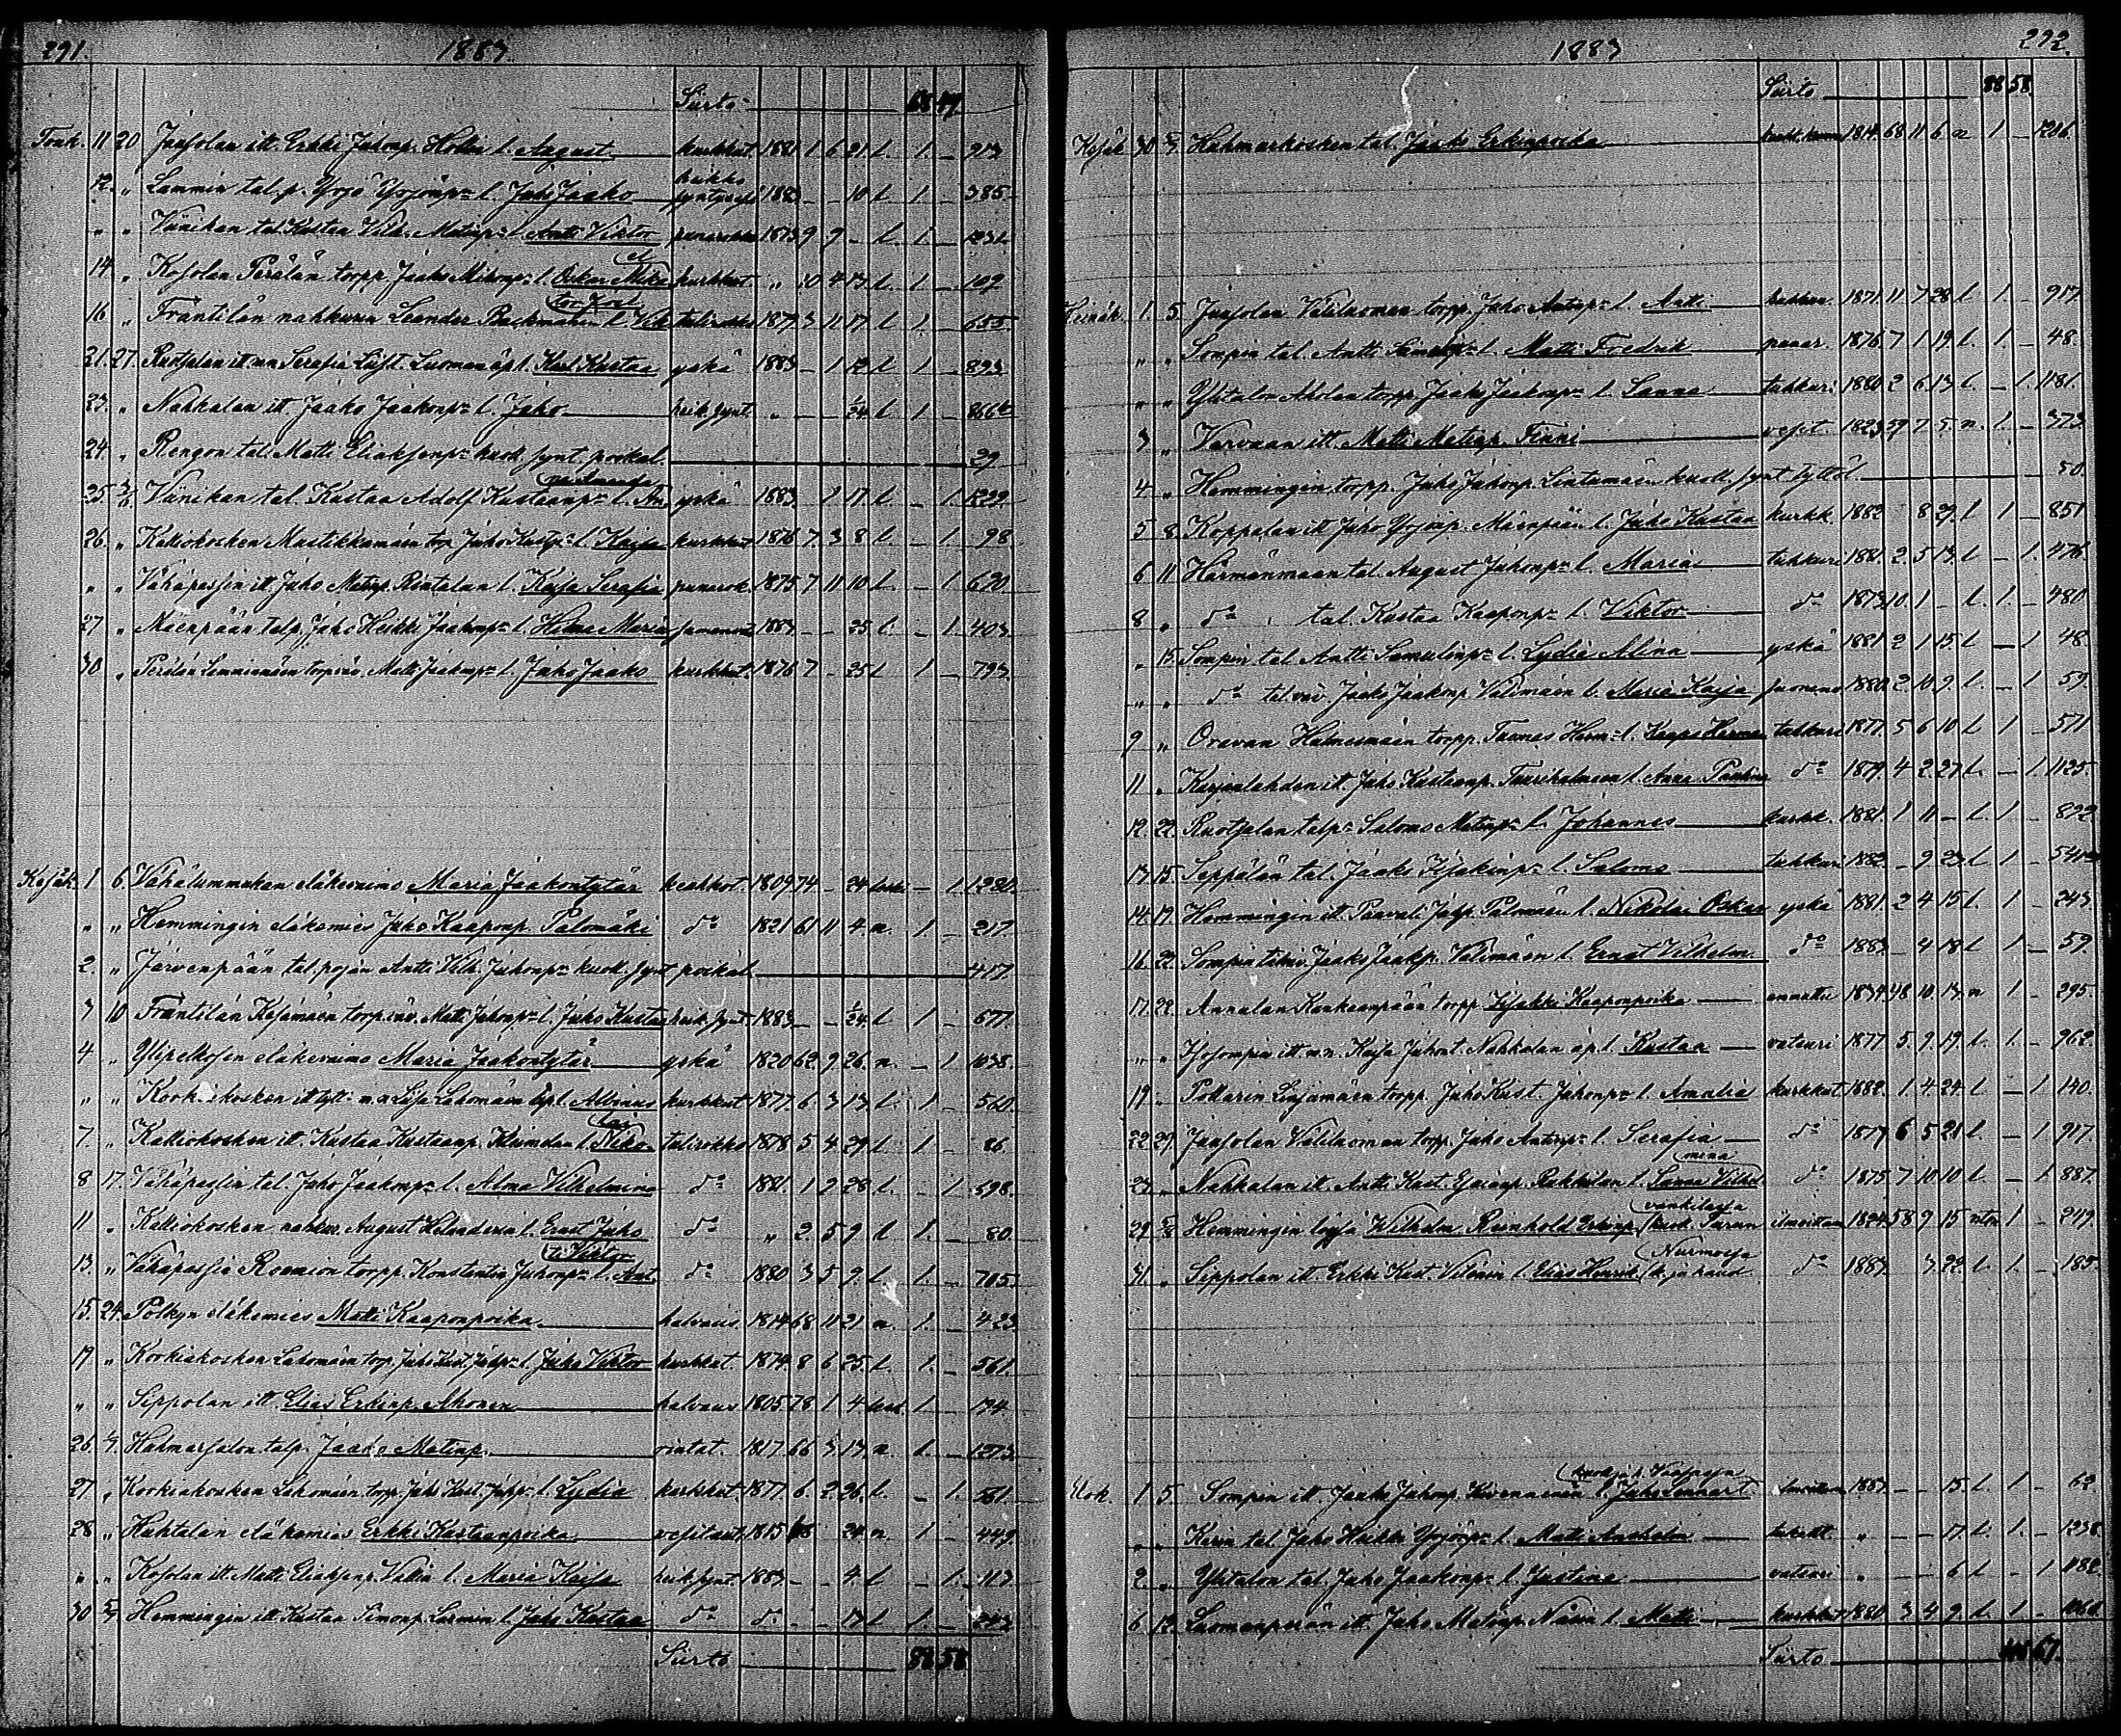 291. 1883.
Siirto 68 49
Touk. 11 20 Jaasolan itt. Erkki Juhonp. Holin l. August kurkkut. 1881 1 6 21 l. 1. 213
12. " Lammin tal. p. Yrjö Yrjönp:n l. Juho Jaako heikko syntyessä 1883 10 l. 1 385
" " Viinikan tal. Kustaa Vilh. Matinp:n l. Antti Viktor punarokko 1873 9 9 l. 1. 1231
14 " Kosolan Perälän torpp. Jaako Mikonp:n l. Oskar Mikael kurkkut. " 10 4 13 l. 1 107
16 " Fräntilän nahkurin Leander Backmanin l. Viktor Joel tulirokko 1879 3 11 17 l. 1. 655
21. 27. Ruotsalan it. n:n Serafia Luoman äp. l. Karl Kustaa yskä 1883 1 12 l. 1 893
23. " Nahkalan itt. Jaako Jaakonp:n l. Juho heik. synt. " 1/24 l. 1 866
24. " Rengon tal. Matti Eliaksenp:n kuoll. synt. poikal. 29
25 3/6 Viinikan tal. Kustaa Adolf Kustaanp:n l. Anna Amanda yskä 1883 1 17 l. 1. 1229.
26. " Kalliokosken Mustikkamäen torp. Juho Kustp:n l. Kaisa kurkkut 1876 7 3 8 l. 1. 98.
" " Vähäpassin it. Juho Matinp. Rintalan l. Kaisa Serafia punarok. 1875 7 11 10 l. 1 620.
27 " Mäenpään talp. Juho Heikki Jaakonp:n l. Hilma Maria 1883 25 l. 1. 403
30 " Perälän Lemmenmäen torp.väv. Matti Jaakonp:n l. Juho Jaako kurkkut. 1876 7 25 l. 1 793.
Kesäk. 1 6. Vähälummukan eläkevaimo Maria Jaakontytär keuhkot. 1809 74 24 leski 1. 1280.
" " Hemmingin eläkemies Juho Kaaponp. Palomäki d:o 1821 61 11 4 n. 1. 217.
2. " Järvenpään tal. pojan Antti Vilh. Juhonp:n kuoll. synt poikal. 417
3 10 Fräntilän Kesämäen torp.väv. Matti Juhonp:n l. Juho Kustaa heik. synt. 1883 1/24 l. 1 677.
4 " Ylipelkosen eläkevaimo Maria Jaakontytär yskä 1820 62 9 26. n. 1 1038.
" " Korkiakosken itt. tytt. n:n Liisa Lahomäen äp. l. Albinus kurkkut 1877. 6 3 13 l. 1 560.
7. " Kalliokosken itt. Kustaa Kustaanp. Kleimolan l. Nikolai tulirokko 1878 5 4 29 l. 1. 86.
8 17. Vähäpassin tal. Juho Jaakonp:n l. Alma Vilhelmina d:o 1881. 1 9 28 l. 1. 598.
11 " Kalliokosken nahkur. August Helanderin l. Ernst Juho d:o " 2 5 9 l 1. 80.
13. " Vähäpassin Roomion torpp. Konstantin Juhonp:n l. Antti Viktor d:o 1880 3 5 9. l. 1. 705.
15. 24. Pölkyn eläkemies Matti Kaaponpoika halvaus 1814 68 11 21 n. 1. 423.
19 " Korkiakosken Lahomäen torp. Juho Kust. Juhp:n l. Juho Viktor kurkkut. 1874. 8 6 25. l. 1. 561.
" " Sippolan itt. Elias Erkinp. Ahonen halvaus 1805. 78 1 4 lesk. 1 194.
26. 4/7. Hahmarsalon talp. Jaako Matinp. rintat. 1817. 66 3 13 n. 1. 1273.
27. " Korkiakosken Lahomäen torpp. Juho Kust. Juhp:n l. Lydia kurkkut. 1877. 6 2 26. l. 1. 561.
28 " Huhtalan eläkemies Erkki Kustaanpoika vesitaut. 1815 68 24 n. 1 449.
" " Kosolan itt. Matti Eliaksenp. Vallin l. Maria Kaisa heik. synt. 1883. 4. l 1. 113
30 5/7 Hemmingin itt. Kustaa Simonp. Larmin l. Juho Kustaa d:o d:o 13 l. 1. 242
Siirto 88 58
1883 292.
Siirto 88 58
Kesäk 30 Hahmarkosken tal. Jaako Erkinpoika 1814. 68 11 6 n 1 1206.
Heinäk. 1. 5. Jaasolan Väliluoman torpp. Juho Antinp:n l. Antti tuhkur. 1871. 11 7 28 l. 1. 917
" " Sompin tal. Antti Samulinp:n l. Matti Fredrik punar. 1876. 7 1 19 l. 1. 48.
" " Ylitalon Aholan torpp. Jaako Jaakonp:n l. Sanna tuhkuri 1880 2 6 13 l. 1. 1181.
3 " Varvaan itt. Matti Matinp. Finni vesit. 1823. 59 7 5. n. 1. 373
4 " Hemmingin torpp. Juho Juhonp. Lintumäen kuoll. synt tyttöl. 50
5 8. Koppelan itt Juho Yrjönp. Mäenpään l. Juho Kustaa kurkk. 1882 8 29. l 1 851
6 11 Härmänmaan tal. August Juhonp:n l. Maria tuhkuri 1881. 2 5 13. l. 1. 476.
8 " d:o tal. Kustaa Kaaponp:n l. Viktor d:o 1873 10. 1 l. 1. 480
" 15. Sompin tal. Antti Samulinp:n l. Lydia Alina yskä 1881 2 1 15. l 1 48.
" " d:o tal.väv. Jaako Jaakonp. Välimäen l. Maria Kaisa 1880. 2. 10. 9. l. 1 59.
9 " Oravan Halmesmäen torpp. Tuomas Herm:n l. Kaapo Herman tuhkuri 1877. 5 6 10 l. 1 571
11 " Karjanlahden it. Juho Kustaanp. Tuurihalmeen l. Anna Paulina d:o 1879. 4 2. 27 l. 1. 1125.
12. 22. Ruotsalan talp:n Salomo Matinp:n l. Johannes kurkk. 1881. 1 11 l. 1 872
13 15. Seppälän tal. Jaako Iisakinp:n l. Salomo tuhkuri 1882. 9 23 l. 1
14. 19. Hemmingin itt. Paavali Juhp. Palomäen l. Nikolai Oskar yskä 1881. 2 4 15 l. 1 243.
16. 22. Sompin tal.väv. Jaako Jaakp. Välimäen l. Ernst Vilhelm d:o 1883. 4 18 l 1 59.
17. 22. Annalan Kankaanpään torpp. Iisakki Kaaponpoika ammuttu 1834. 48 10. 13. n 1 295.
" " Isosompin itt. n:n Kaisa Juhont. Nahkalan äp. l. Kustaa vatsuri 1877 5. 9. 19. l. 1. 962.
19. " Pottarin Linjamäen torpp. Juho Kust. Juhonp:n l. Amalia kurkkut 1882. 1. 4 24. l 1 140.
22 29. Jaasolan Väliluoman torpp. Juho Antinp:n l. Serafia d:o 1877 6 5 21 l. 1 917.
23. " Nahkalan it. Antti Kust. Rahkilan l. Sanna Vilhelmina d:o 1875. 7 10 10 l. 1 887.
29 5/8 Hemmingin loisi Wilhelm Reinhold Erkinp. (kuoll. Turun vankilassa ilmoittam. 1824. 58 9 15 1 249.
31 " Sippolan itt. Erkki Kust. Vilénin l. Elias Henrik (k. ja haud. Nurmossa d:o 1883. 3 22. l. 1. 185.
Elok. 1 5. Sompin itt. Jaako Juhonp. l. Juho Lennart (kuoll. ja h. Vaasassa ilmoittam. 1883. 15. l. 1 62
" " Karin tal. Juho Heikki Yrjönp:n l. Matti Anshelm " 17 l. 1. 1238.
2 " Ylitalon tal. Juho Jaakonp:n l. Justina vatsuri " 6 l 1 1182.
6 12. Luomanperän itt. Juho Matinp. l. Matti kurkkut 1880. 3 4 9. l. 1
Siirto 67.